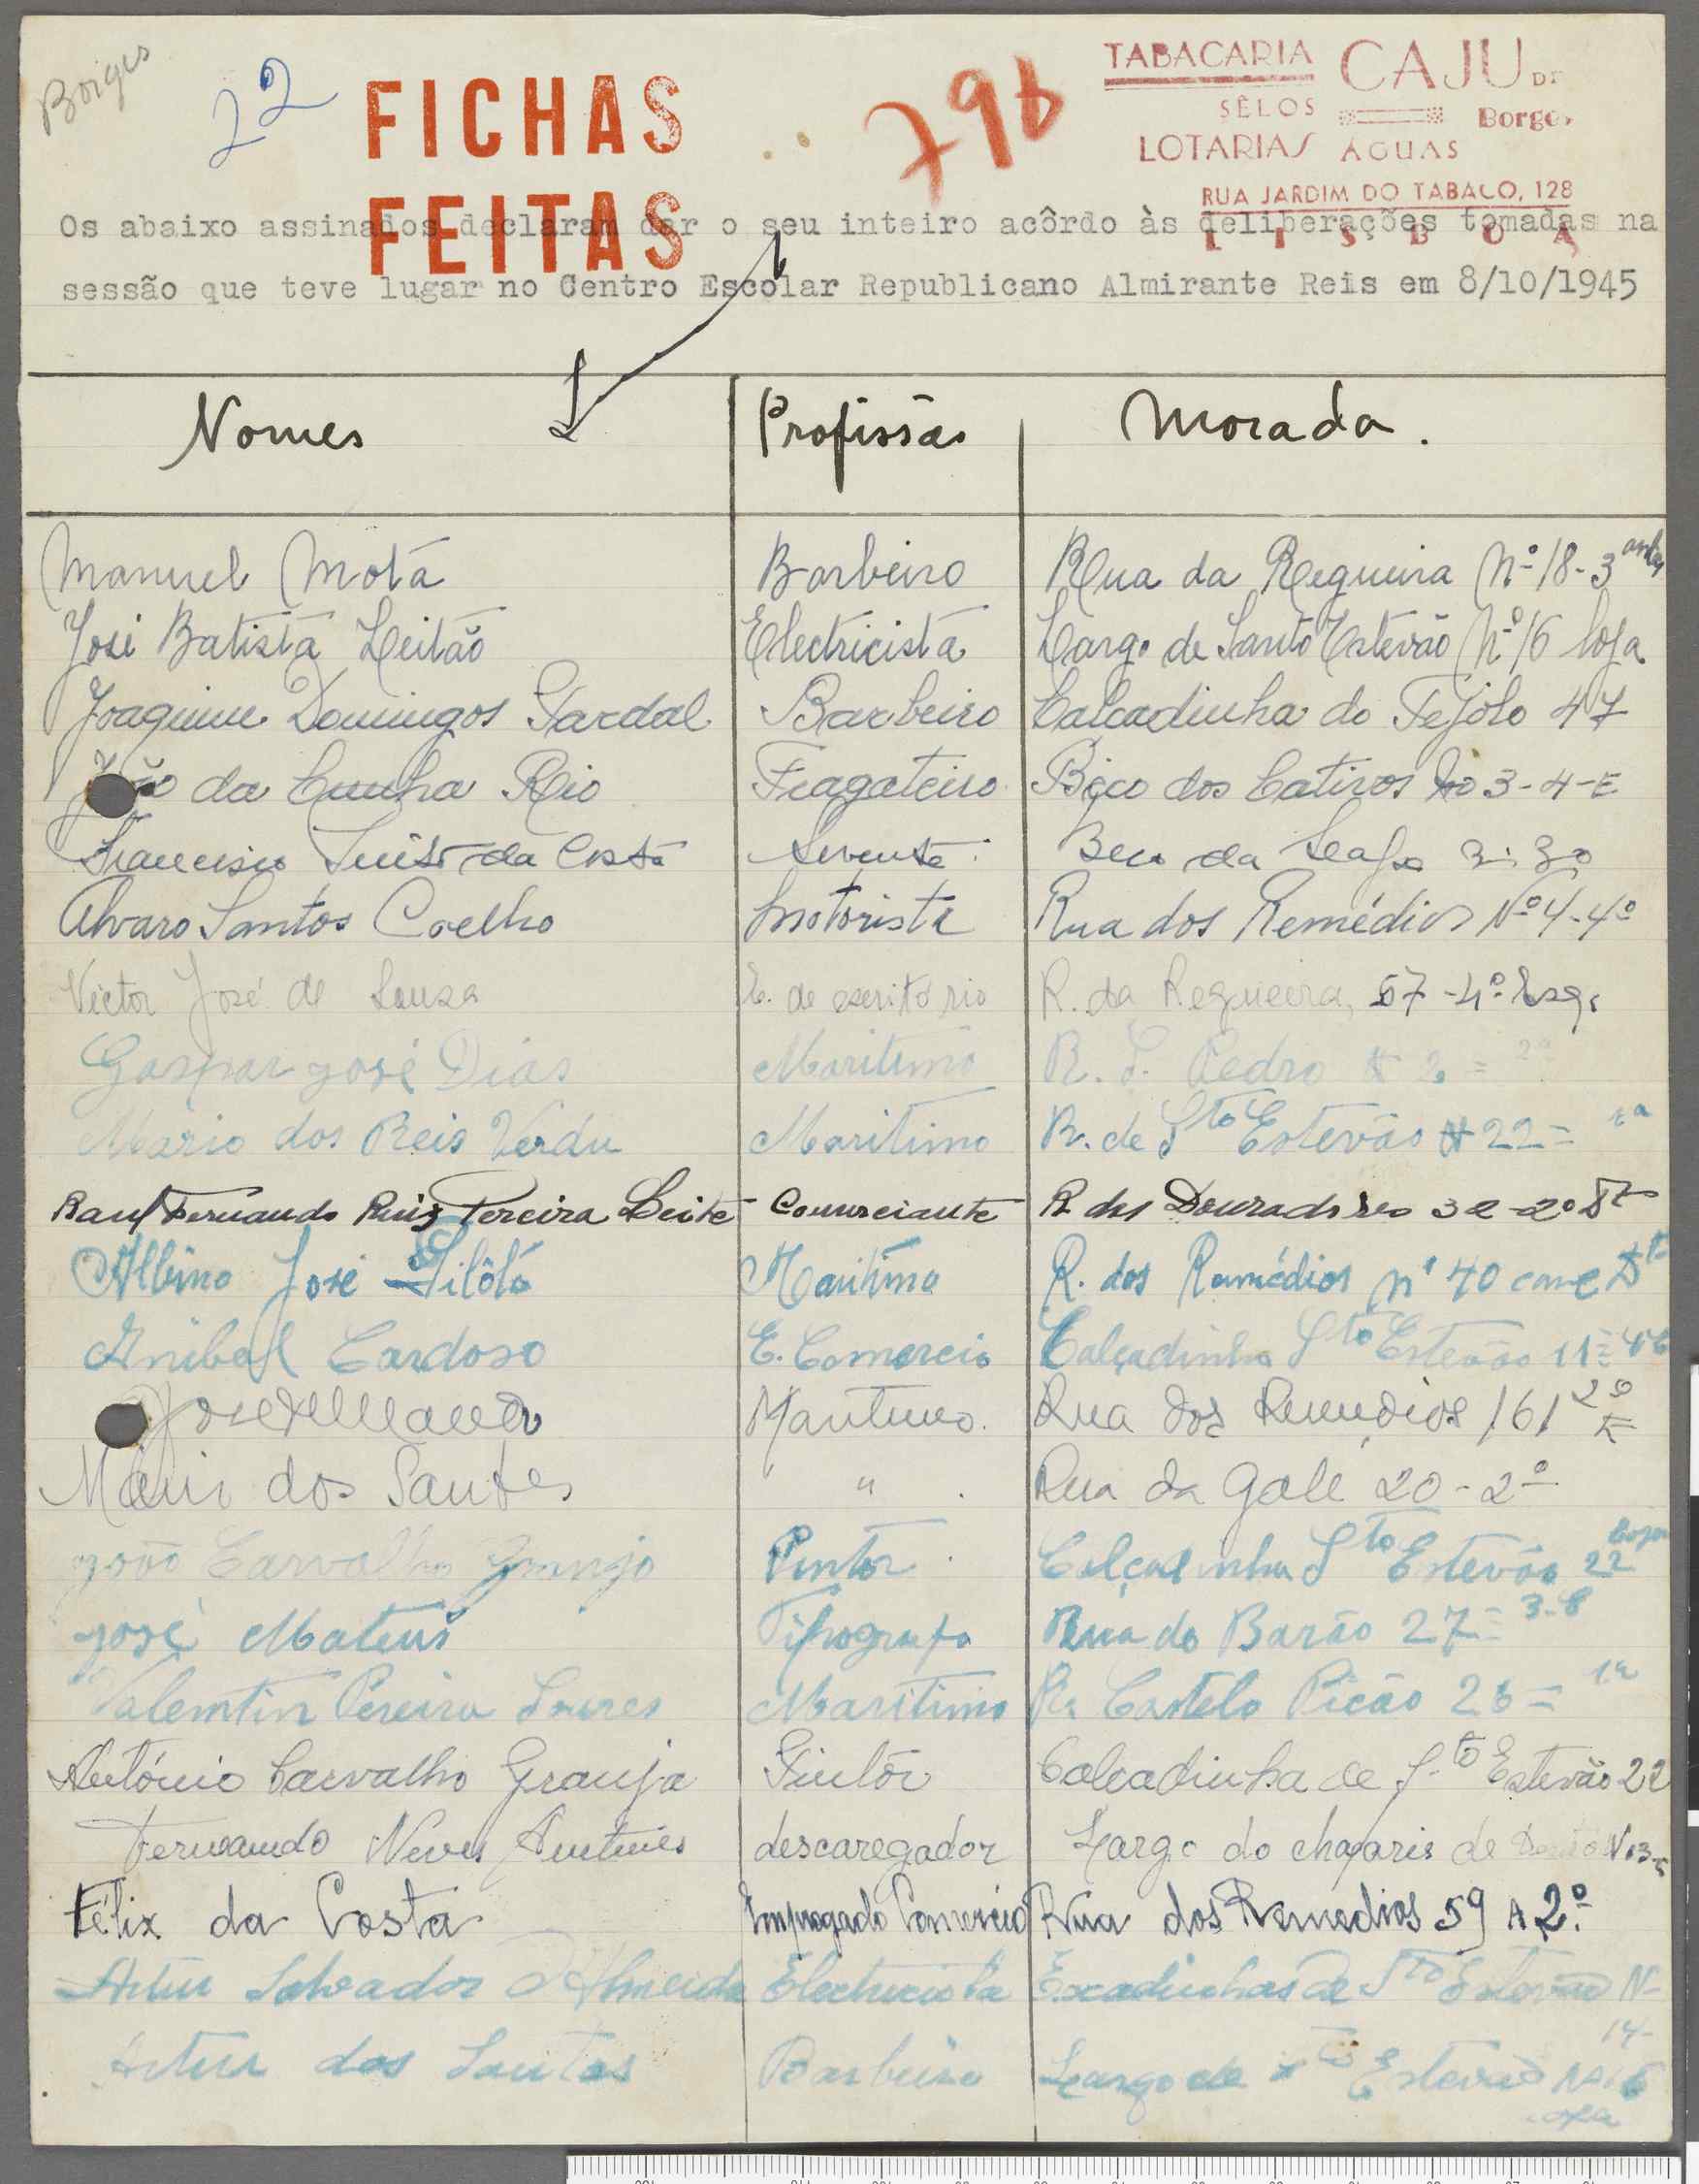 Borges
22
FICHAS
FEITAS
798
TABACARIA CAJU DE
SÊLOS Borges
LOTARIAS ÁGUAS
RUA JARDIM DO TABACO, 128
LISBOA
Os abaixo assinados declaram dar o seu inteiro acôrdo às deliberações tomadas na
sessão que teve lugar no Centro Escolar Republicano Almirante Reis em 8/10/1945
Nomes Profissão Morada.
Manuel Mota Barbeiro Rua da Regueira Nº 18-3
José Batista Leitão Electricista Largo de Santo Estevão Nº 16 loja
Joaquim Domingos Pardal Barbeiro Calcadinha do Tejolo 47
João da Cunha Rio Fragateiro Bêco dos Cativos 3-4-E
Francisco Luís da Costa Servente Beco da 3: 3º
Alvaro Santos Coelho motorista Rua dos Remédios Nº 4-4º
Victor José de Sousa E. de escritório R. da Regueira, 57-4º Esq.
Gaspar José Dias Maritimo R. S. Pedro 2 = 2º
Mário dos Reis Verdu Maritimo R. de Sto Estevão 22 =
Raul Fernando Ruiz Pereira Leite Comerciante R dos Douradores 32-2º Dto
Albino José Maritimo R. dos Remédios nº 40 cave Dto
Anibal Cardoso E. Comercio Calçadinha Sto Estevão 11 =
José Maritimo. Rua dos Remedios 161 2º E
Mario dos Santos " Rua da Galé 20-2º
João Carvalho Granja Pintor Calçadinha Sto Estevão 22 loja
José Mateus Tipografo Rua do Barão 27 = 3-
Valemtin Pereira Maritimo R. Castelo Picão 26 =
António Carvalho Granja Pintôr Calcadinha de Sto Estevão 22
Fernando Neves Antunes descaregador Largo do chafaris de
Félix da Costa Empregado Comercio Rua dos Remedios 59 A 2º
Artur Salvador d'Almeida Electricista Escadinhas de Sto Estevão N- 14-
Artur dos Santos Barbeiro Largo de Sto Estevão